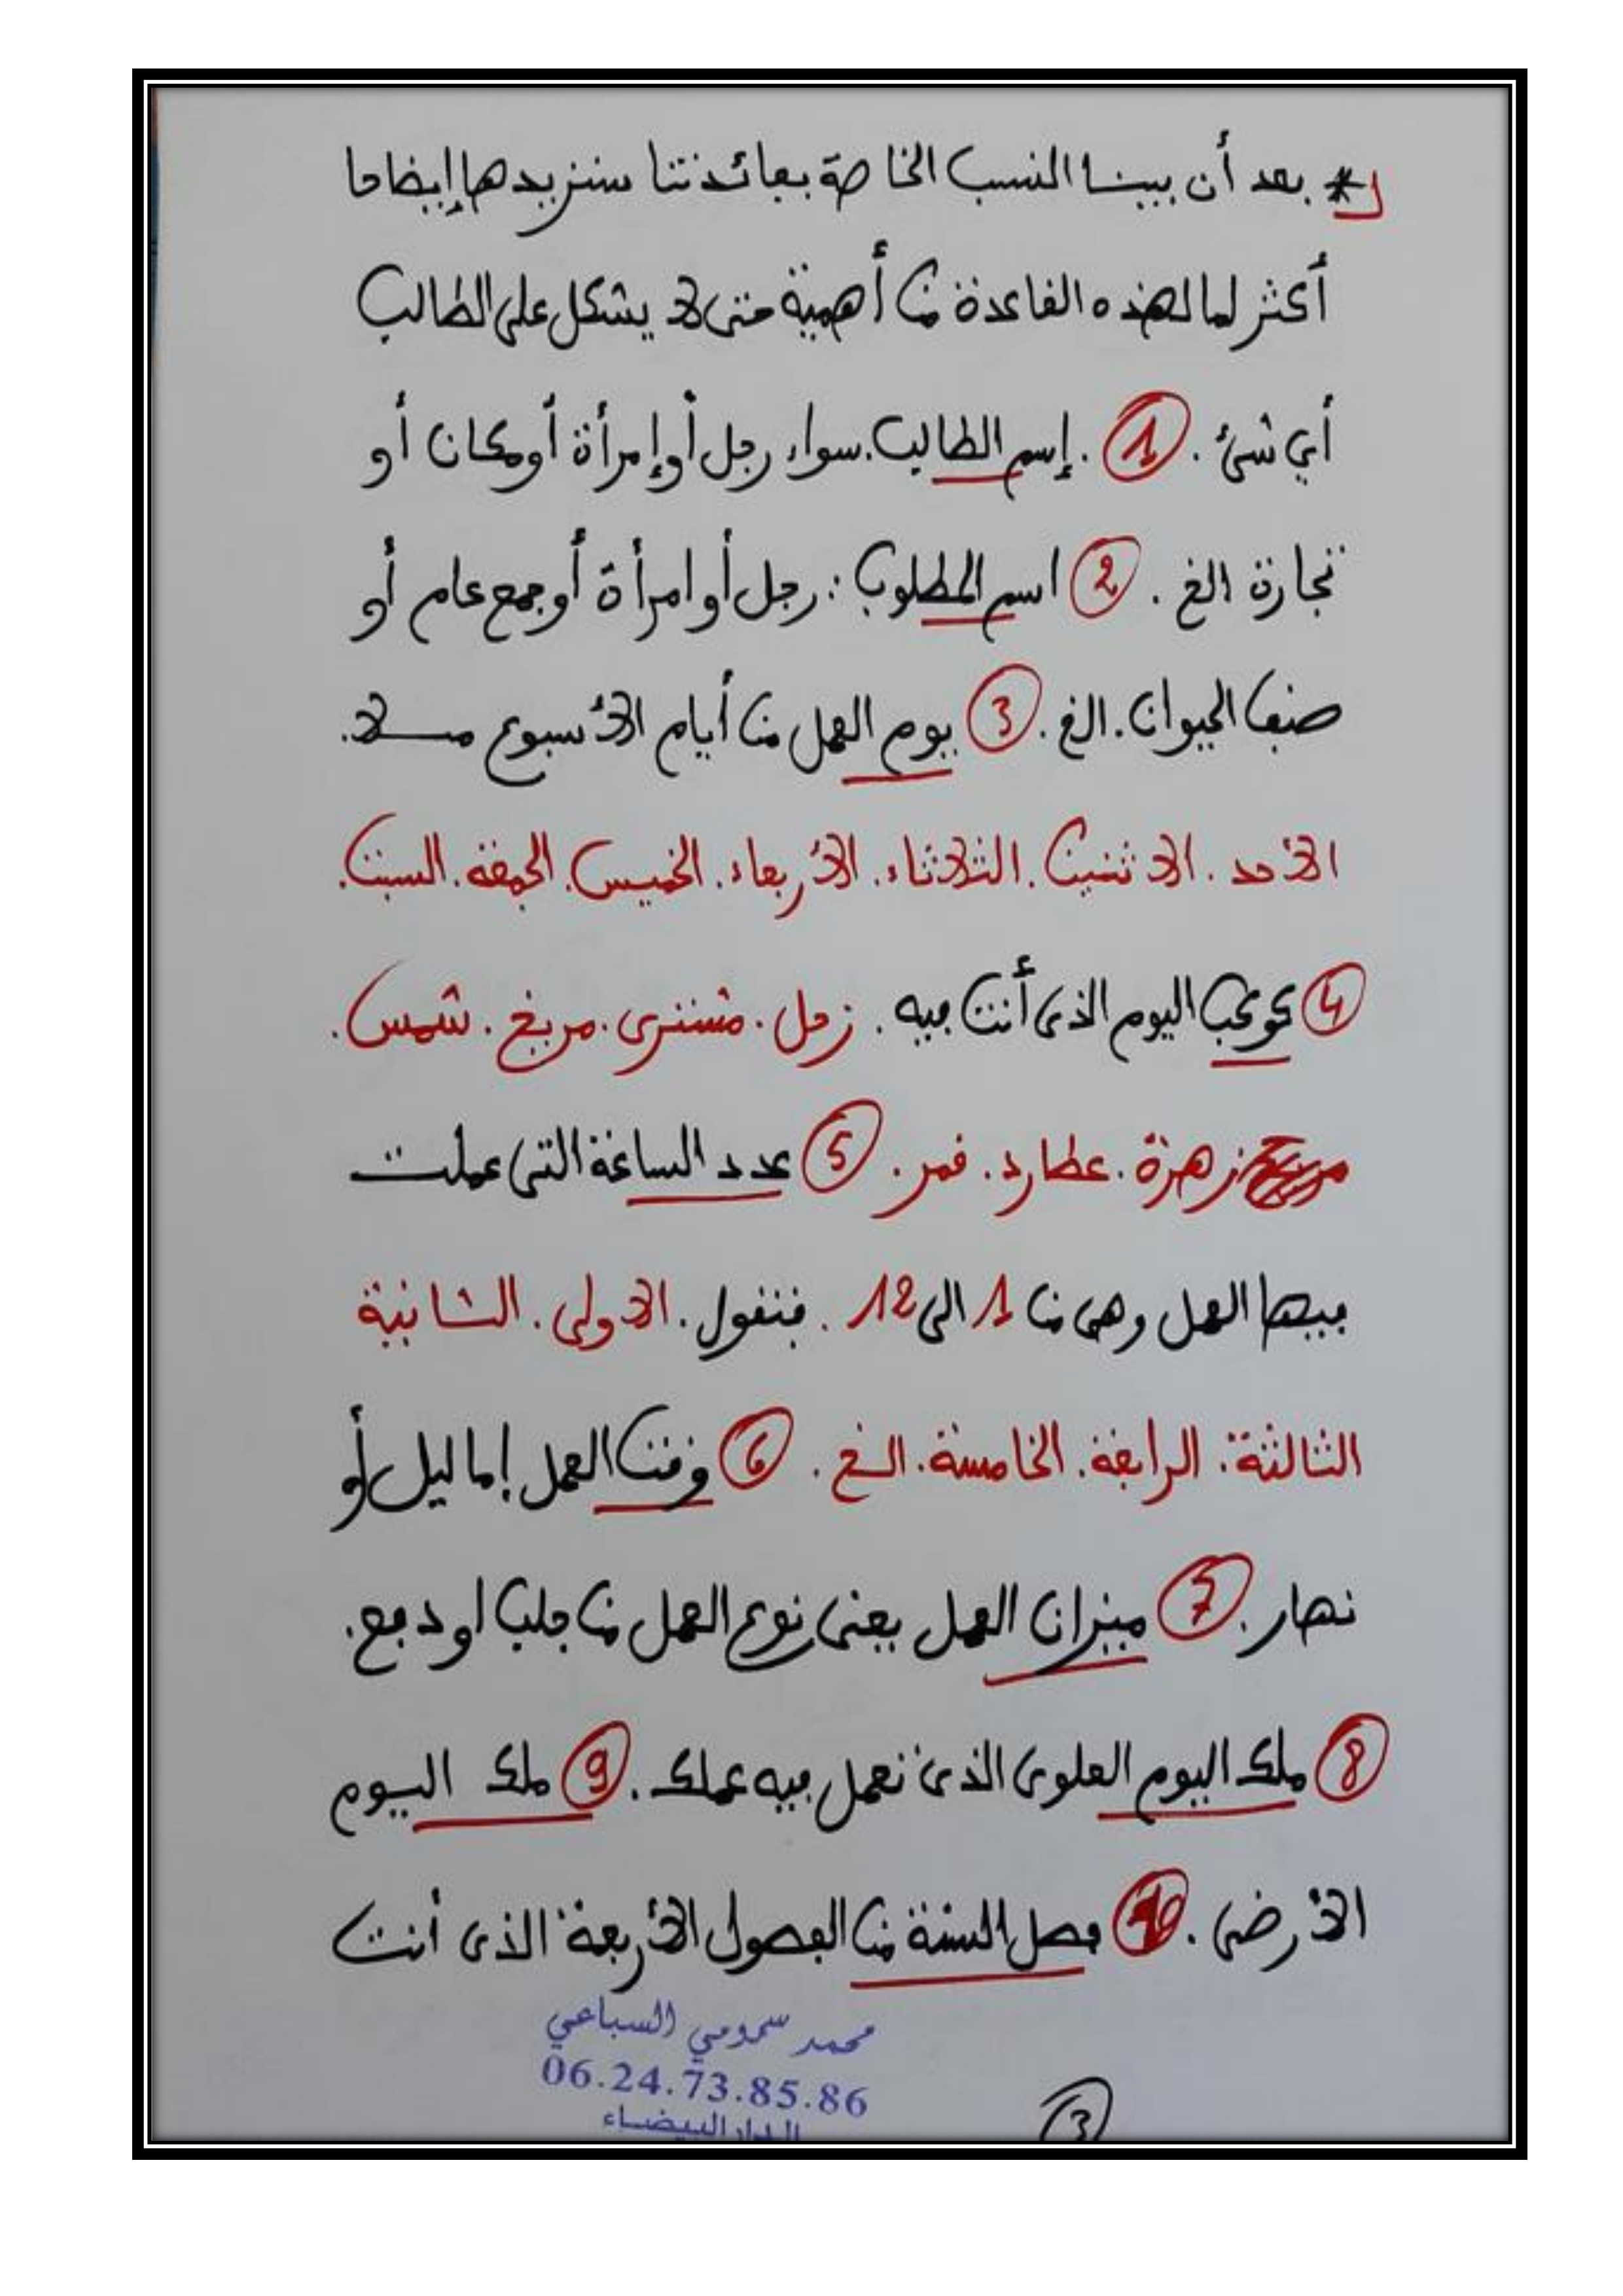 * بعد أن بينا النسب الخاصة بفائدتنا سنزيدها إيضاحا
أكثر لما لهذه القاعدة من أهمية حتى لا يشكل على الطالب
أي شئ . 1 . إسم الطالب . سواء رجل أو إمرأة أو مكان أو
تجارة الخ . 2 اسم المطلوب : رجل أو امرأة أو جمع عام أو
صنف الحيوان . الخ . 3 يوم العمل من أيام الأسبوع مثلا .
الأحد . الاثنين . الثلاثاء . الأربعاء . الخميس . الجمعة . السبت .
4 كوكب اليوم الذى أنت فيه . زحل . مشترى . مريخ . شمس .
زهرة . عطارد . قمر . 5 عدد الساعة التى عملت
فيها العمل وهى من 1 الى 12 . فنقول . الاولى . الثانية
الثالثة . الرابعة . الخامسة . الخ . 6 وقت العمل إما ليل أو
نهار . 7 ميزان العمل يعنى نوع العمل من جلب او دفع .
8 ملك اليوم العلوى الذى تعمل فيه عملك . 9 ملك اليوم
الأرضى . 10 فصل السنة من الفصول الأربعة الذى أنت
محمد سمومي السباعي
06.24.73.85.86
الدار البيضاء
3